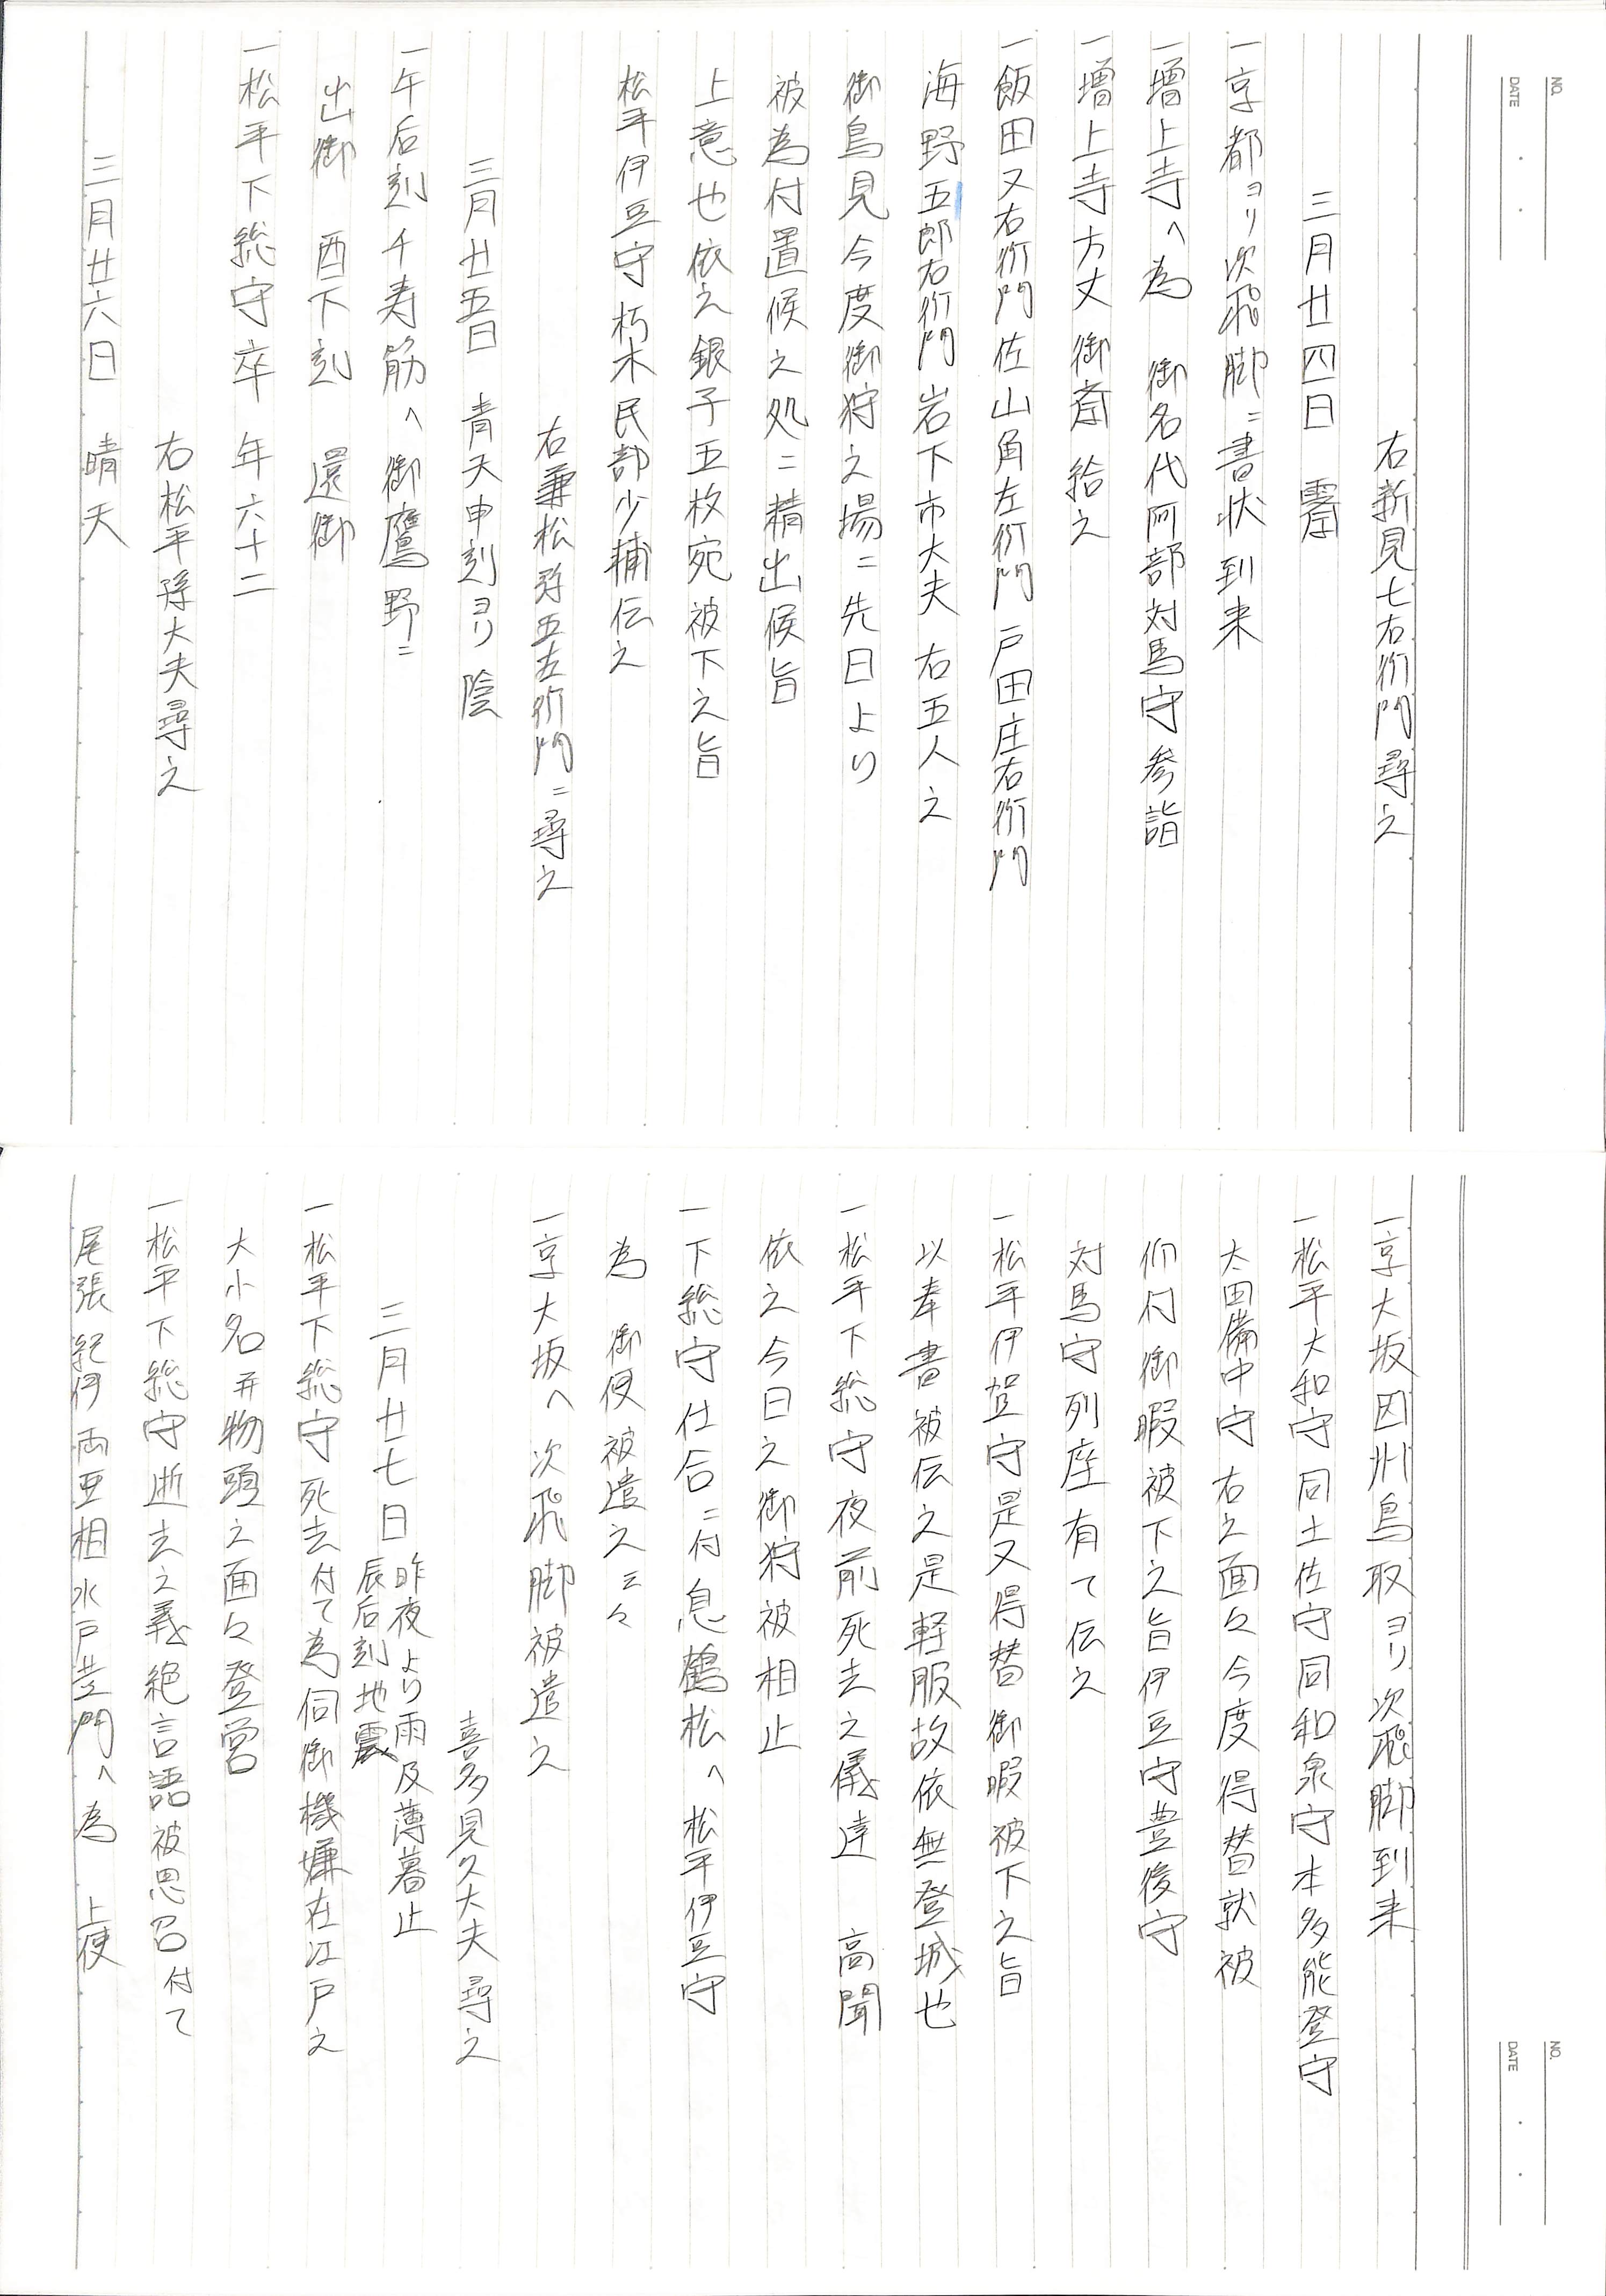 NO.
DATE
右新見七右衛門尋之
三月廿四日　霽
一京都ヨリ次飛脚ニ書状到来
一増上寺へ為　御名代阿部対馬守参詣
一増上寺方丈御斎給之
一飯田又右衛門佐山角左衛門戸田庄右衛門
海野五郎右衛門岩下市大夫右五人之
御鳥見今度御狩之場ニ先日より
被為付置候之処ニ精出候旨
上意也依之銀子五枚宛被下之旨
松平伊豆守朽木民部少輔伝之
右兼松弥五左衛門ニ尋之
三月廿五日　青天申刻ヨリ陰
一午后刻千寿筋へ御鷹野ニ
出御　酉下刻　還御
一松平下総守卒　年六十二
右松平孫大夫尋之
三月廿六日　晴天
NO.
DATE
一京大坂因州鳥取ヨリ次飛脚到来
一松平大和守同土佐守同和泉守本多能登守
太田備中守右之面々今度得替就被
仰付御暇被下之旨伊豆守豊後守
対馬守列座有て伝之
一松平伊賀守是又得替御暇被下之旨
以奉書被伝之是軽服故依無登城也
一松平下総守夜前死去之儀達　高聞
依之今日之御狩被相止
一下総守仕合ニ付息鶴松へ松平伊豆守
為　御使被遣之云々
一京大坂へ次飛脚被遣之
喜多見久大夫尋之
三月廿七日　昨夜より雨及薄暮止
辰后刻地震
一松平下総守死去付て為伺御機嫌在江戸之
大小名并物頭之面々登営
一松平下総守逝去之義絶言語被思召付て
尾張紀伊両亜相水戸黄門へ為　上使